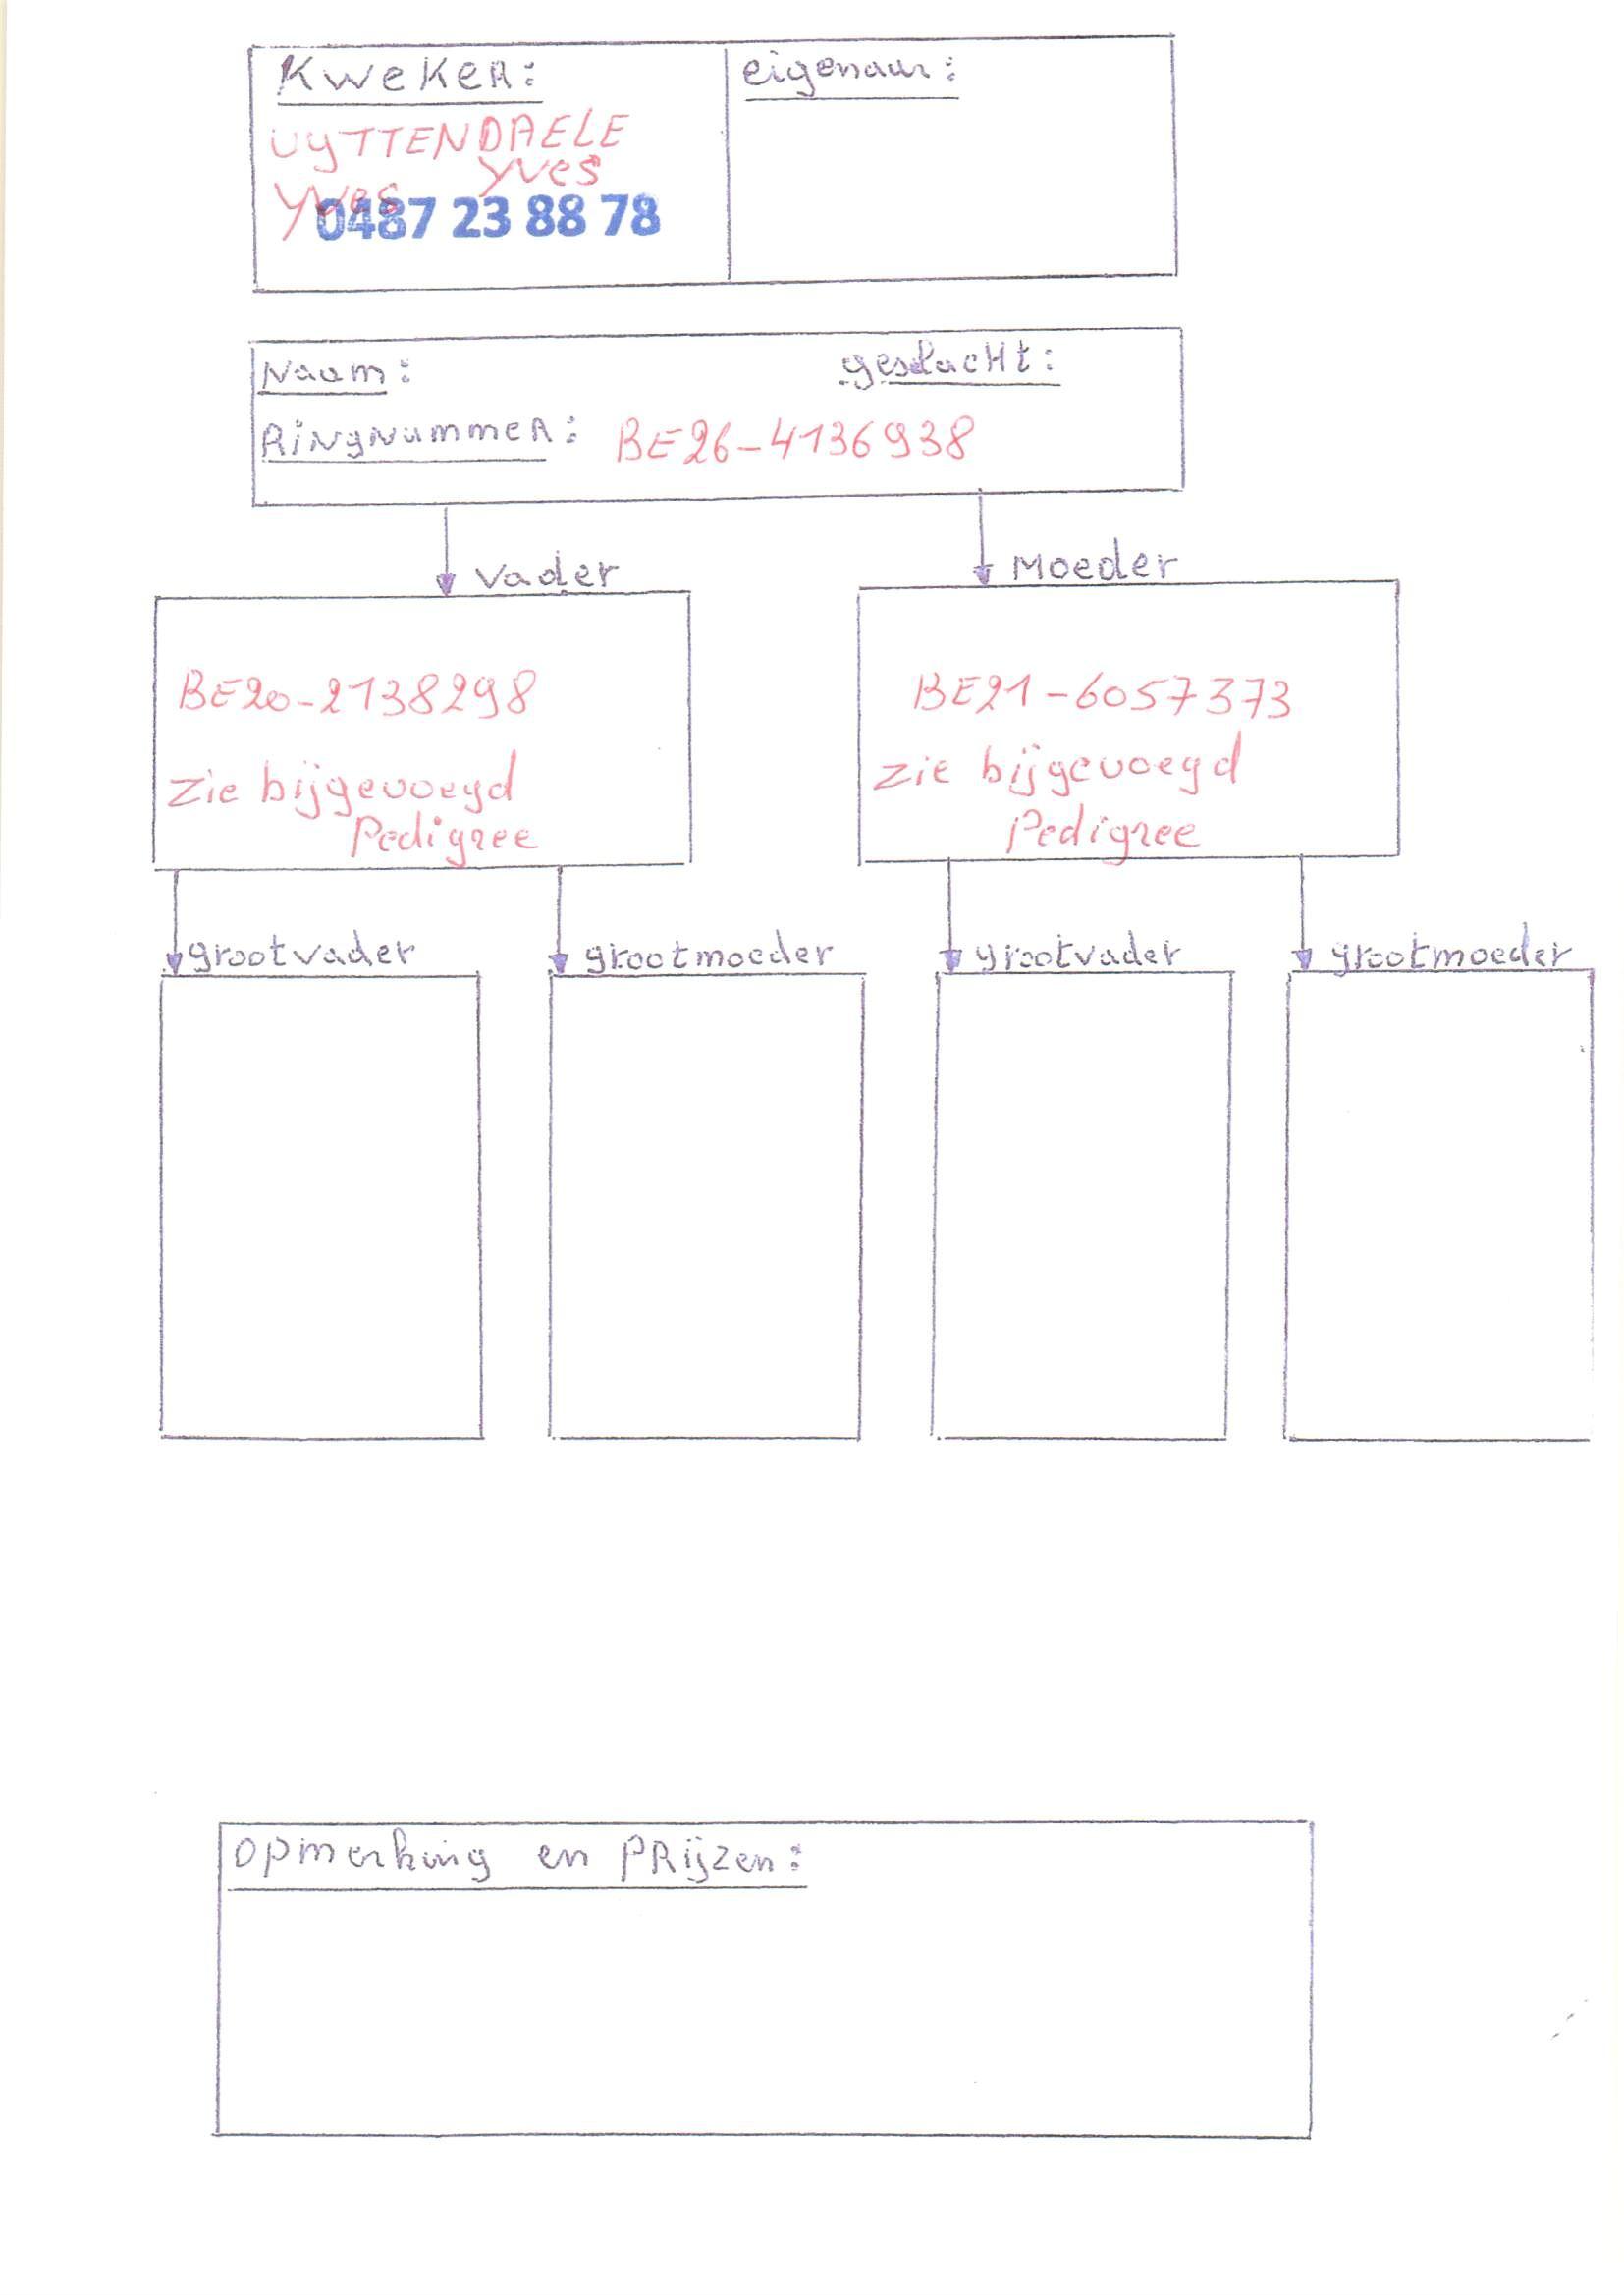 KWEKER:
eigenaar:
UYTTENDAELE
YVES
YVES
0487 23 88 78
Naam:
geslacht:
Ringnummer:
BE26-4136938
Vader
Moeder
BE20-2138298
BE21-6057373
Zie bijgevoegd
Pedigree
Zie bijgevoegd
Pedigree
grootvader
grootmoeder
grootvader
grootmoeder
opmerking en PRijzen: